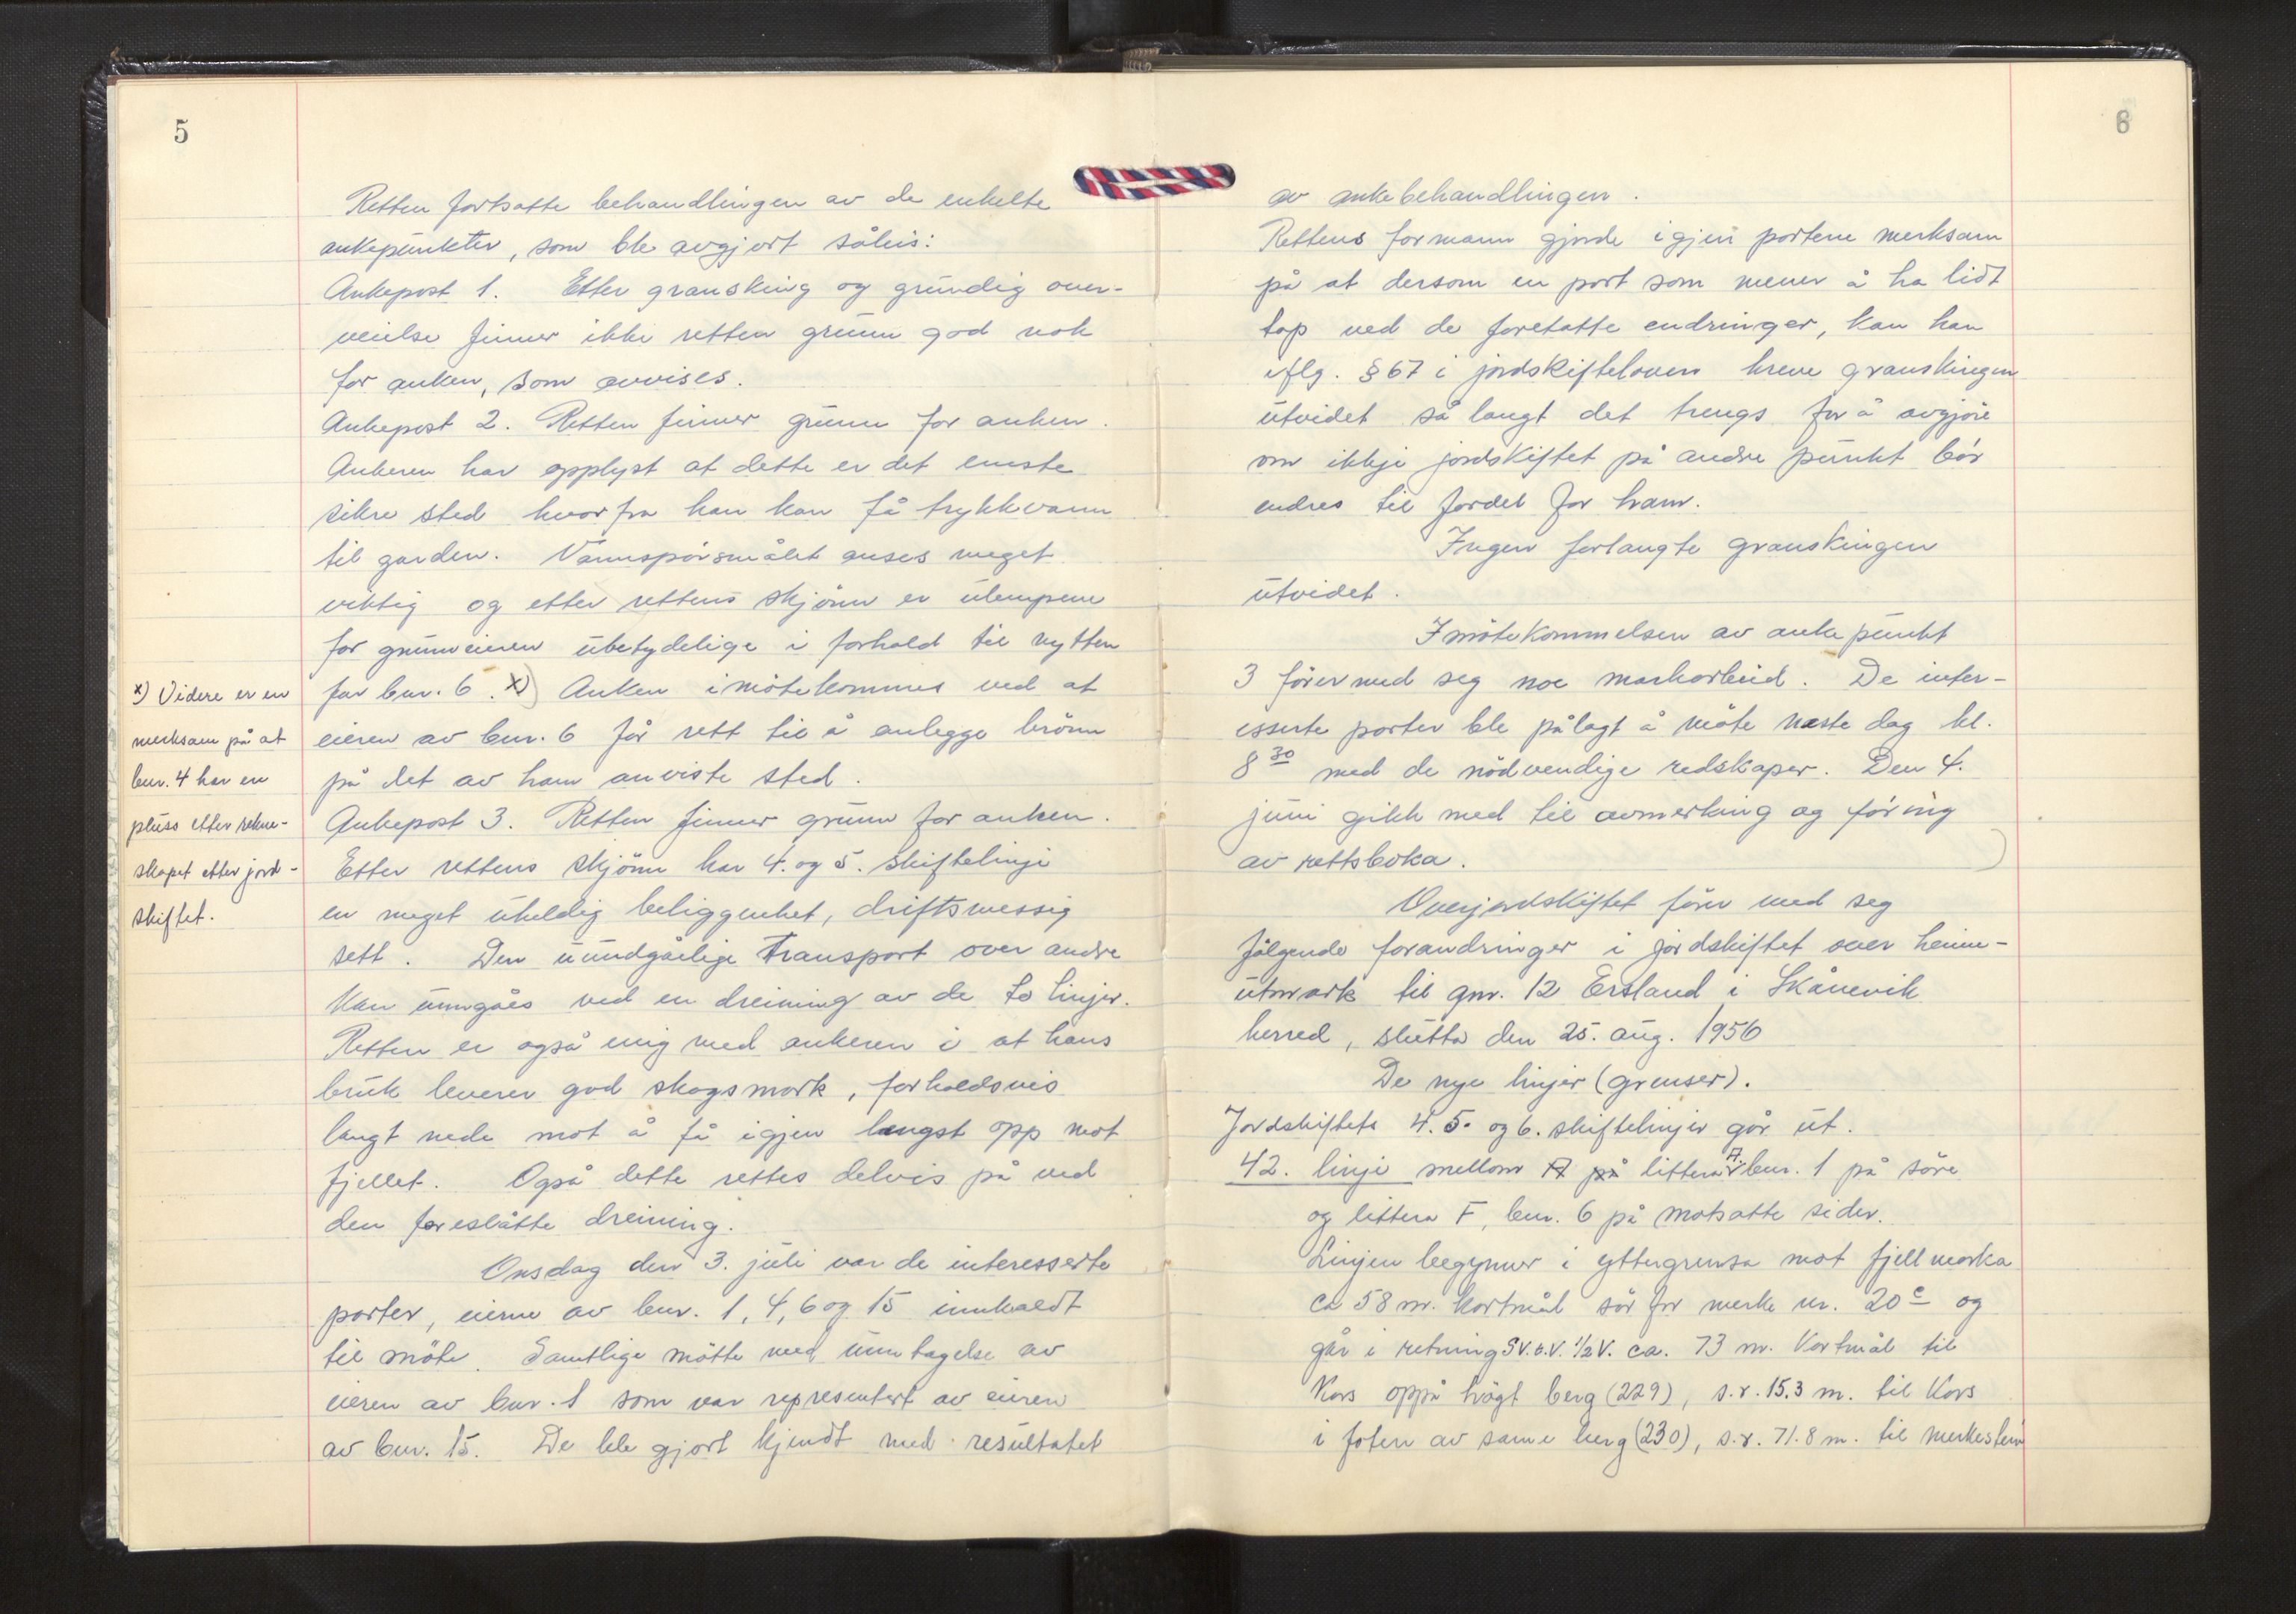 5
Retten fortsatte behandlingen av de enkelte
ankepunkter, som ble avgjort såleis:
Ankepost 1. Etter gransking og grundig over-
veielse finner ikke retten grunn god nok
for anken, som avvises.
Ankepost 2. Retten finner grunn for anken.
Ankeren har opplyst at dette er det eneste
sikre sted hvorfra han kan få trykkvann
til garden. Vannspörsmålet anses meget
viktig og etter rettens skjönn er ulempene
for grunneieren ubetydelige i forhold til nytten
for bnr. 6. x) Anken imötekommes ved at
eieren av bnr. 6 får rett til å anlegge brönn
på det av ham anviste sted.
Ankepost 3. Retten finner grunn for anken.
Etter rettens skjönn har 4. og 5. skiftelinje
en meget uheldig beliggenhet, driftsmessig
sett. Den uundgåelige transport over andre
kan unngåes ved en dreining av de to linjer.
Retten er også enig med ankeren i at hans
bruk leverer god skogsmark, forholdsvis
langt nede mot å få igjen lengst opp mot
fjellet. Også dette rettes delvis på ved
den foreslåtte dreining.
Onsdag den 3. juli var de interesserte
parter, eierne av bnr. 1, 4, 6 og 15 innkaldt
til möte. Samtlige mötte med unntagelse av
eieren av bnr. 1 som var representert av eieren
av bnr. 15. De ble gjort kjendt med resultatet
x) Videre er en
merksam på at
bnr. 4 har en
pluss etter rekne-
skapet etter jord-
skiftet.
6
av ankebehandlingen.
Rettens formann gjorde igjen partene merksam
på at dersom en part som mener å ha lidt
tap ved de foretatte endringer, kan han
iflg. § 67 i jordskifteloven kreve granskingen
utvidet så langt det trengs for å avgjöre
om ikkje jordskiftet på andre punkt bör
endres til fordel for ham.
Ingen forlangte granskingen
utvidet.
Imötekommelsen av ankepunkt
3 förer med seg noe markarbeid. De inter-
esserte parter ble pålagt å möte neste dag kl.
8 30 med de nödvendige redskaper. Den 4.
juni gikk med til avmerking og föring
av rettsboka.
Overjordskiftet förer med seg
fölgende forandringer i jordskiftet over heime-
utmark til gnr. 12 Ersland i Skånevik
herred, slutta den 25. aug. 1956
De nye linjer (grenser).
Jordskiftets 4. 5. og 6. skiftelinjer går ut.
42. linje mellom A på littera A. bnr. 1 på söre
og littera F, bnr. 6 på motsatte sider.
Linjen begynner i yttergrensa mot fjellmarka
ca 58 m. kartmål sör for merke nr. 20 c og
går i retning SV.t.V. 1/2 V. ca. 73 m. kartmål til
kors oppå högt berg (229), s.r. 15.3 m. til kors
i foten av same berg (230), s.r. 71.8 m. til merkestein